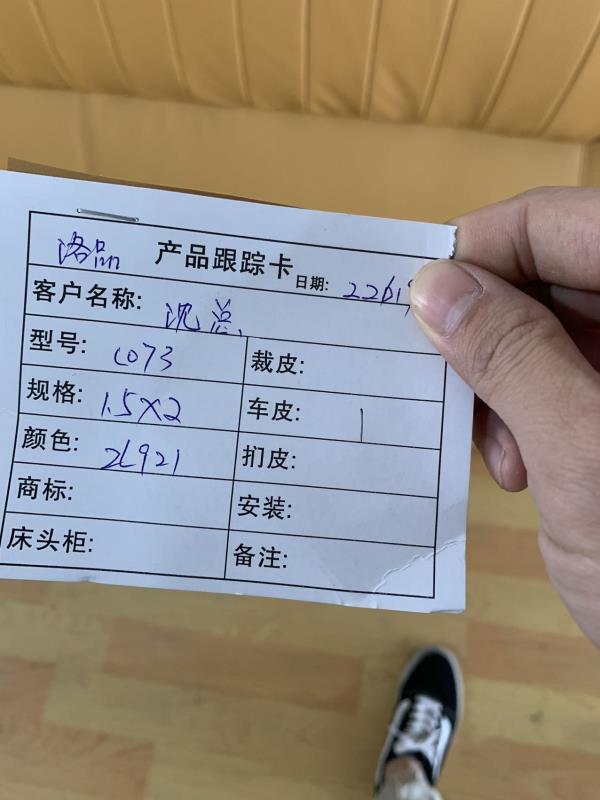 洛品 产品跟踪卡 日期:
客户名称: 沈总
型号: C073 裁皮:
规格: 1.5X2 车皮: 1
颜色: 2L921 扪皮:
商标: 安装:
床头柜: 备注: